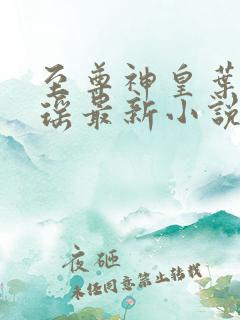 至尊神皇葉
瑤最新小說
夜砸
未经同意禁止转载